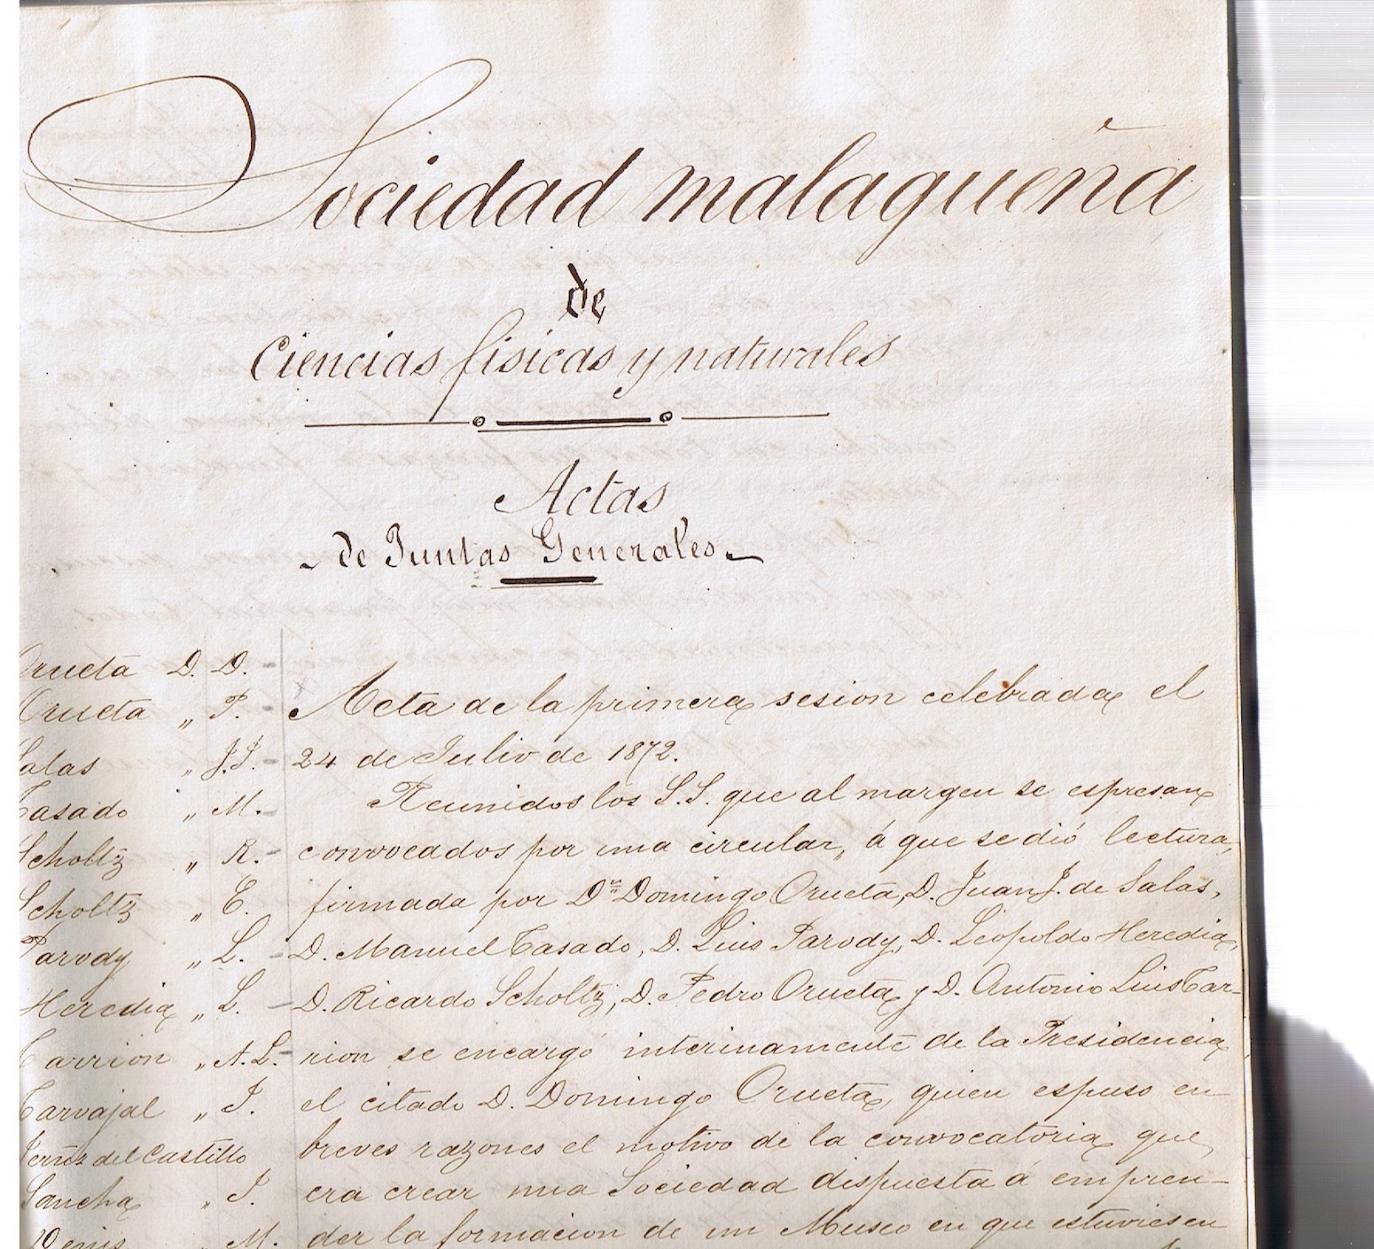 Sociedad malagueña
de
Ciencias físicas y naturales
Actas
de Juntas Generales
Orueta D. D.
Orueta „ P.
Salas „ J.J.
Casado „ M.
Scholtz „ R.
Scholtz „ E.
Parody „ L.
Heredia „ L.
Carrion „ A.L.
Carvajal „ J.
del Castillo
Sancha „ J.
Denis „ M.
Acta de la primera sesion celebrada el
24 de Julio de 1872.
Reunidos los S.S. que al margen se espresan
convocados por una circular, á que se dió lectura,
firmada por Dn Domingo Orueta, D. Juan J. de Salas,
D. Manuel Casado, D. Luis Parody, D. Leopoldo Heredia,
D. Ricardo Scholtz, D. Pedro Orueta y D. Antonio Luis Car-
rion se encargó interinamente de la Presidencia
el citado D. Domingo Orueta, quien espuso en
breves razones el motivo de la convocatoria que
era crear una Sociedad dispuesta á empren-
der la formacion de un Museo en que estuviesen